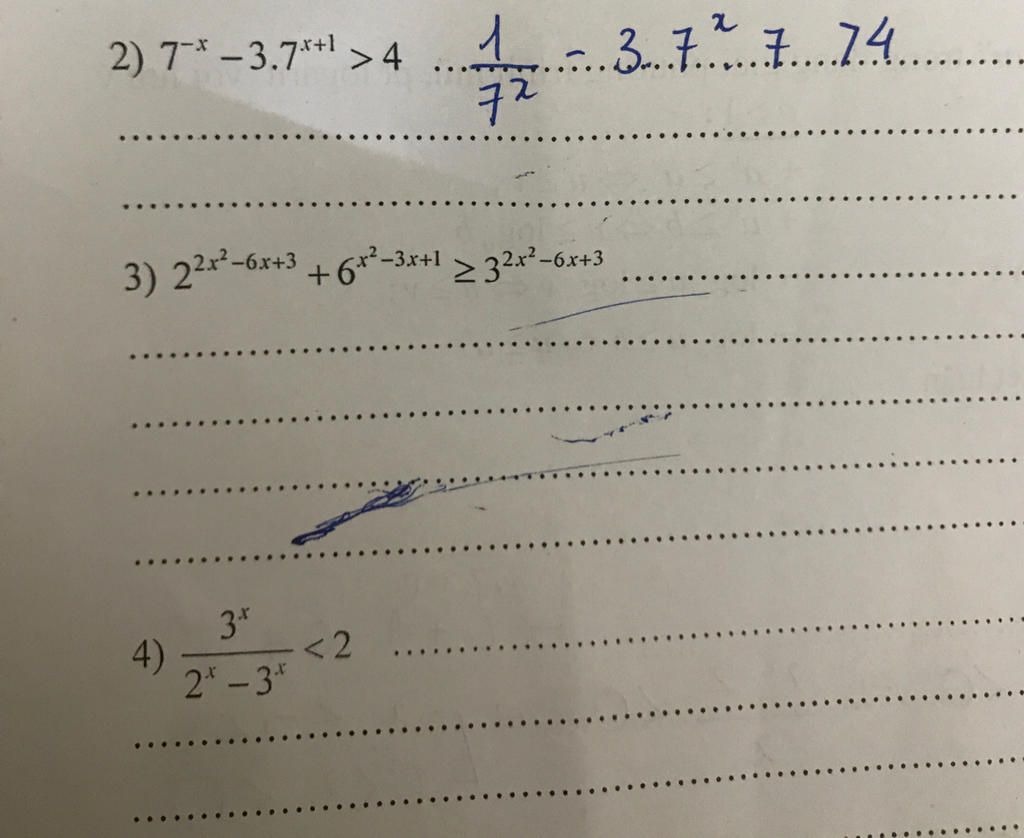 2) 7⁻ˣ − 3.7ˣ⁺¹ > 4 1/7ˣ − 3.7ˣ.7 > 4
3) 2^(2x²−6x+3) + 6^(x²−3x+1) ≥ 3^(2x²−6x+3)
4) 3ˣ/(2ˣ − 3ˣ) < 2